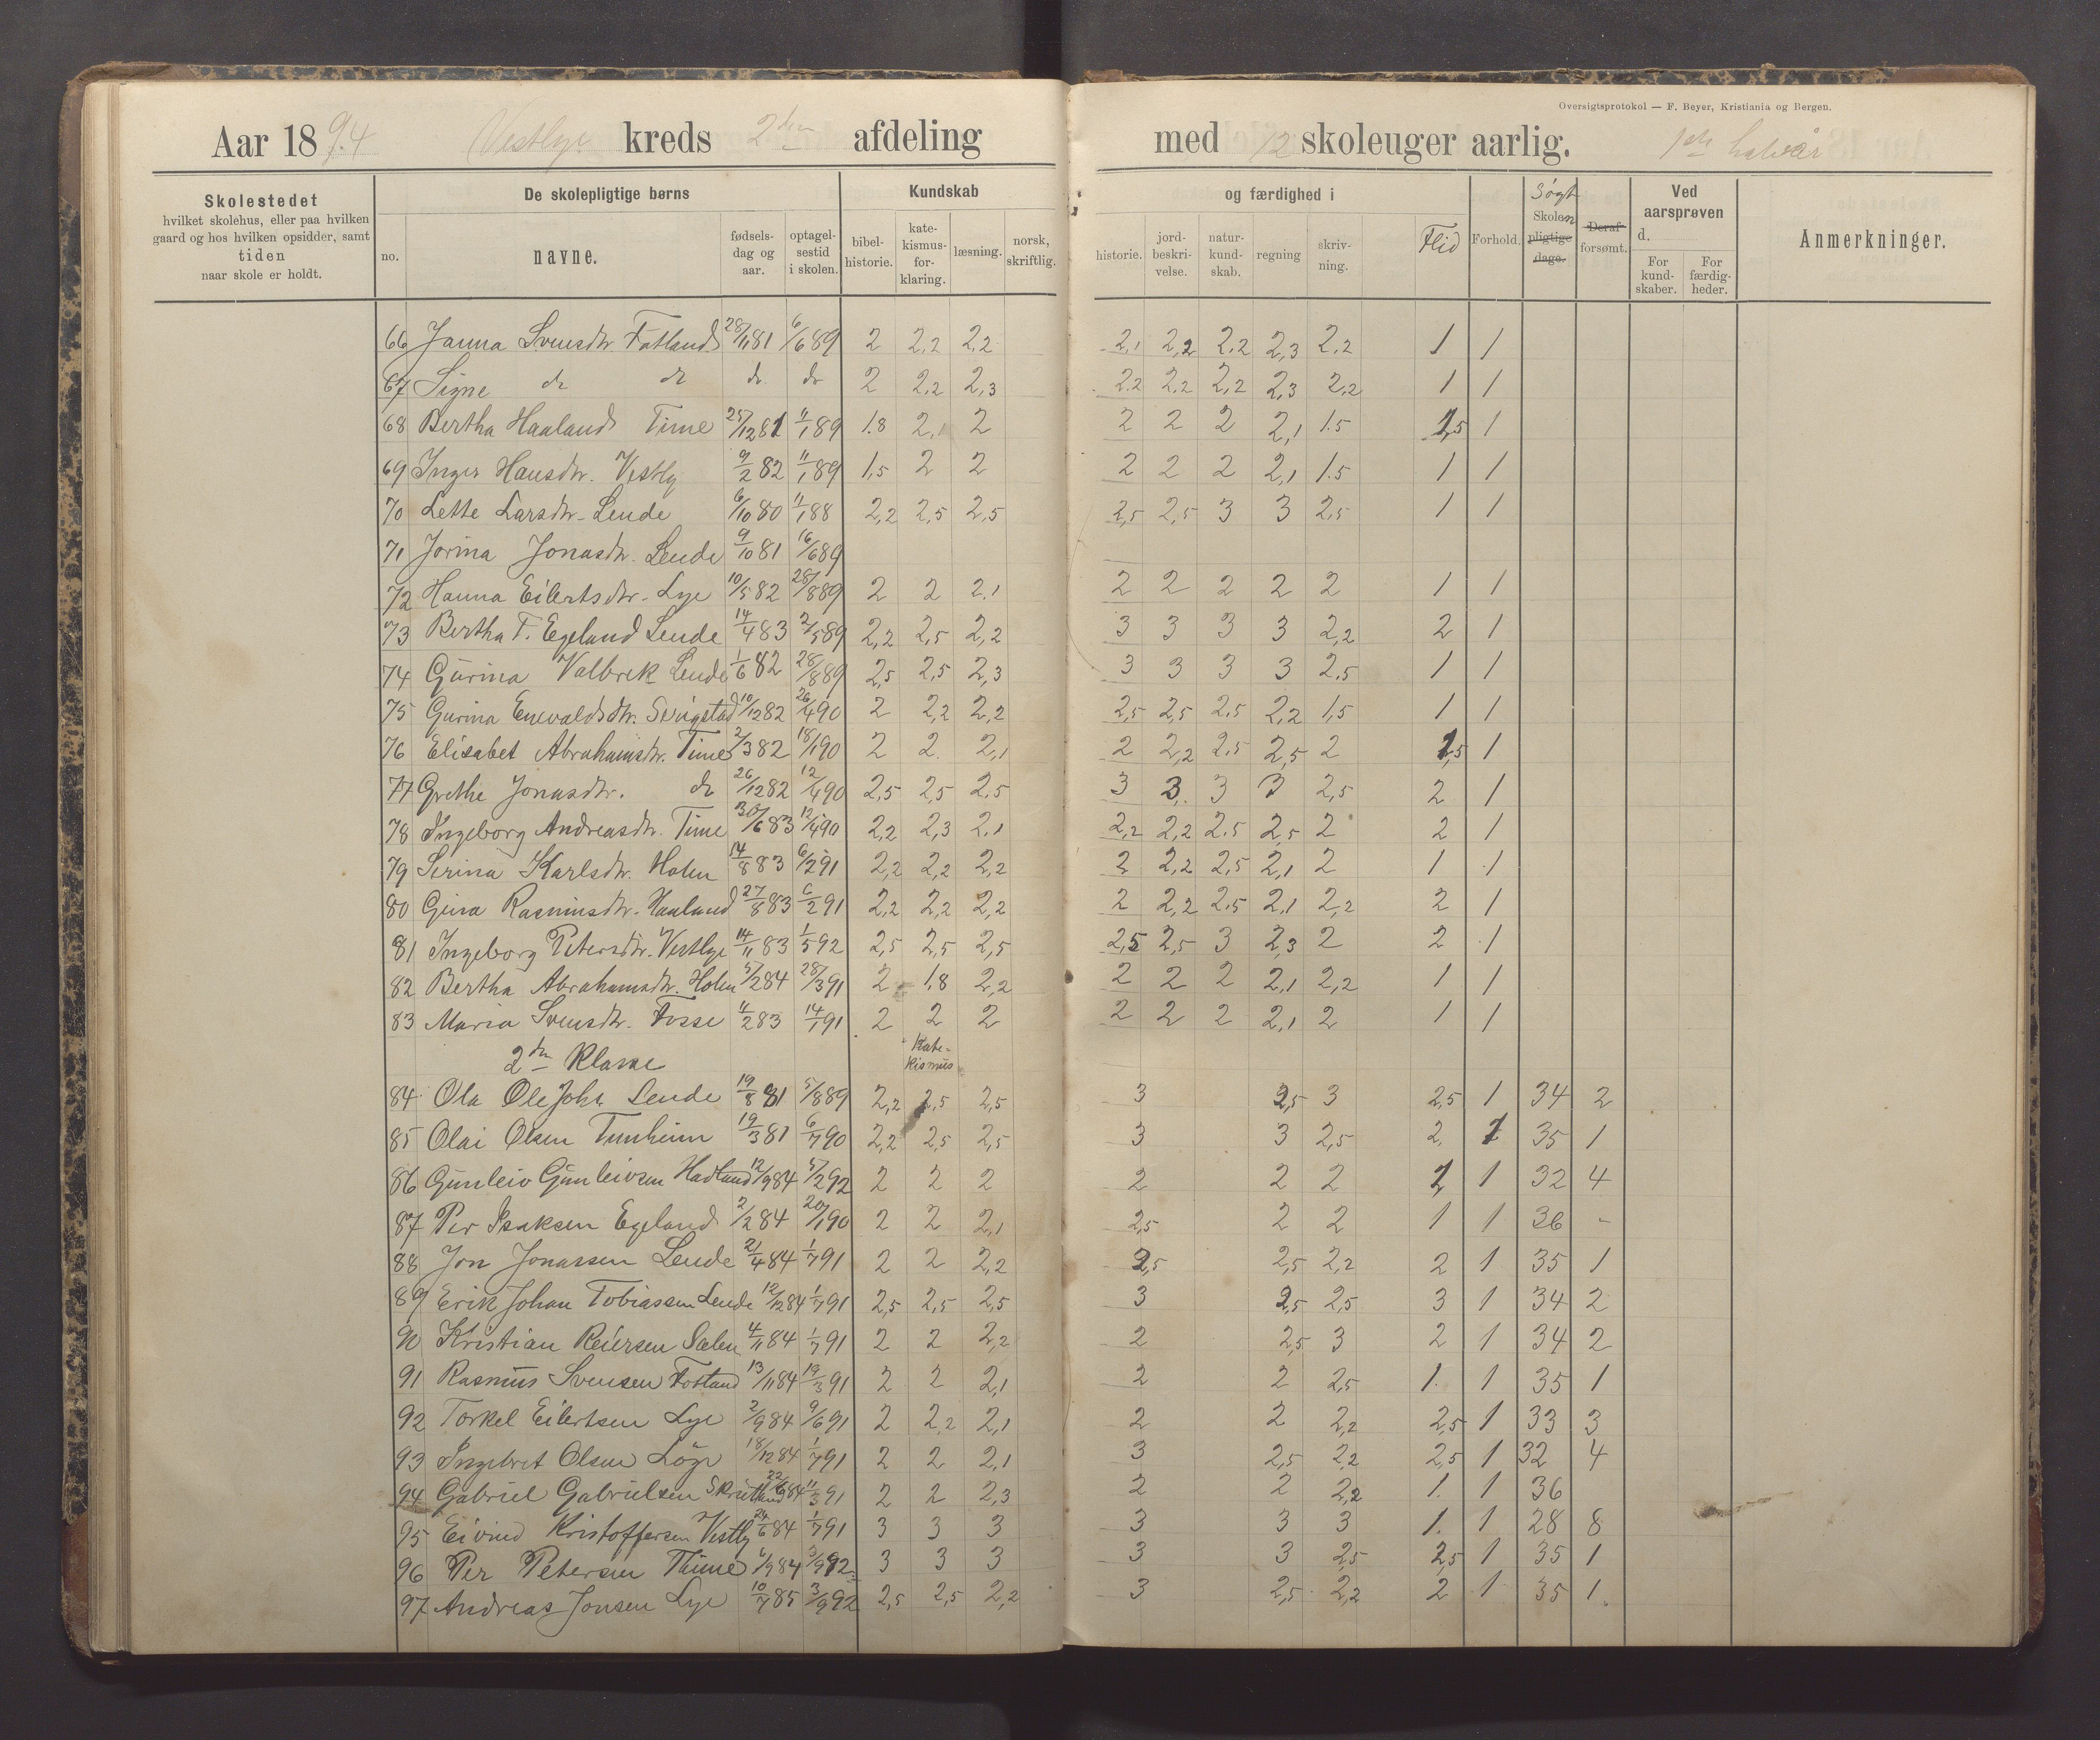 Oversigtsprotokol — F. Beyer, Kristiania og Bergen.
Aar 1894 Vestlye kreds 2den afdeling med 12 skoleuger aarlig. 1ste halvår
Skolestedet
hvilket skolehus, eller paa hvilken
gaard og hos hvilken opsidder, samt
tiden
naar skole er holdt.
De skolepligtige børns
no.
navne.
fødsels-
dag og
aar.
optagel-
sestid
i skolen.
Kundskab
bibel-
historie.
kate-
kismus-
for-
klaring.
læsning.
norsk,
skriftlig.
og færdighed i
historie.
jord-
beskri-
velse.
natur-
kund-
skab.
regning
skriv-
ning.
Flid
Forhold.
Søgt
Skolen
pligtige
dage.
Deraf
forsømt.
Ved
aarsprøven
d.
For
kund-
skaber.
For
færdig-
heder.
Anmerkninger.
66 Janna Svensdtr. Fatland 28/11 81 6/6 89 2 2,2 2,2 2,1 2,2 2,2 2,3 2,2 1 1
67 Signe do do do do 2 2,2 2,3 2,2 2,2 2,2 2,3 2,2 1 1
68 Bertha Haaland Time 25/12 81 11/1 89 1.8 2,1 2 2 2 2 2,1 1.5 1,5 1
69 Inger Hansdtr. Vestly 9/2 82 11/1 89 1,5 2 2 2 2 2 2,1 1.5 1 1
70 Lette Larsdtr. Lende 6/10 80 11/1 88 2,2 2,5 2,5 2,5 2,5 3 3 2,5 1 1
71 Jorina Jonasdtr. Lende 9/10 81 16/6 89
72 Hanna Eilertsdtr. Lye 10/5 82 28/8 89 2 2 2.1 2 2 2 2 2 1 1
73 Bertha T. Egeland Lende 14/4 83 2/5 89 2,2 2,5 2,2 3 3 3 3 2,2 2 1
74 Gurina Valbrek Lende 1/6 82 28/8 89 2,5 2,5 2,3 3 3 3 3 2.5 1 1
75 Gurina Enevaldsdtr. Serigstad 10/12 82 26/4 90 2 2,2 2,2 2,5 2,5 2,5 2,2 1,5 1 1
76 Elisabet Abrahamsdtr. Time 2/3 82 18/1 90 2 2. 2,1 2 2,2 2,5 2,5 2 1,5 1
77 Grethe Jonasdtr. do 26/12 82 12/4 90 2,5 2,5 2.5 3 3. 3 3 2,5 2 1
78 Ingeborg Andreasdtr. Time 30/6 83 12/4 90 2,2 2,3 2,1 2,2 2,2 2.5 2,5 2 2 1
79 Serina Karlsdtr. Holen 14/8 83 6/2 91 2,2 2,2 2,2 2 2,2 2,5 2,1 2 1 1
80 Gina Rasmusdtr. Haaland 27/8 83 6/2 91 2,2 2,2 2,2 2 2,2 2.5 2,1 2,2 2 1
81 Ingeborg Petersdtr. Vestlye 14/11 83 1/5 92 2,5 2,5 2,5 2,5 2,5 3 2,3 2 2 1
82 Bertha Abrahamsdtr. Holen 5/2 84 28/3 91 2 1,8 2,2 2 2 2 2,1 2,2 1 1
83 Maria Svensdtr. Fosse 11/2 83 14/1 91 2 2 2 2 2 2 2,1 2 1 1
2den Klasse Kate-
kismus
84 Ola OleJoh. Lende 19/8 81 5/8 89 2,2 2,5 2,5 3 2,5 3 2,5 1 34 2
85 Olai Olsen Tunheim 19/3 81 6/7 90 2,2 2,5 2,5 3 3 2,5 2. 1 35 1
86 Gunleiv Gunleivsen Hadland 12/9 84 5/2 92 2 2 2 2 2 2 1 1 32 4
87 Per Isaksen Egeland 2/2 84 20/1 90 2 2 2,1 2,5 2 2 1 1 36 -
88 Jon Jonassen Lende 21/4 84 1/7 91 2 2 2,2 2,5 2,5 2,2 2 1 35 1
89 Erik Johan Tobiassen Lende 12/12 84 1/7 91 2,5 2,5 2,5 3 2,5 2,5 3 1 34 2
90 Kristian Reiersen Sælen 4/11 84 1/7 91 2 2 2,2 2 2,5 3 2 1 34 2
91 Rasmus Svensen Fotland 13/11 84 19/3 91 2 2 2,1 2 2 2,5 1. 1 35 1
92 Torkel Eilertsen Lye 2/9 84 9/6 91 2 2,2 2,1 2 2 2,2 2,5 1 33 3
93 Ingebret Olsen Löge 18/12 84 1/7 91 2 2 2,1 3 2,5 2,2 2,5 1 32 4
94 Gabriel Gabrielsen Skretland 22/6 84 11/3 91 2 2 2,3 2 2 2,2 1. 1 36
95 Eivind Kristoffersen Vestly 24/6 84 1/7 91 3 3 3 3 3 3 1. 1 28 8
96 Per Petersen Thime 6/9 84 3/9 92 3 3 3 3 3 2,5 2,5 1 35 1
97 Andreas Jonsen Lye 10/7 85 3/9 92 2,5 2,5 2,2 3 2,5 2,2 2 1 35 1.